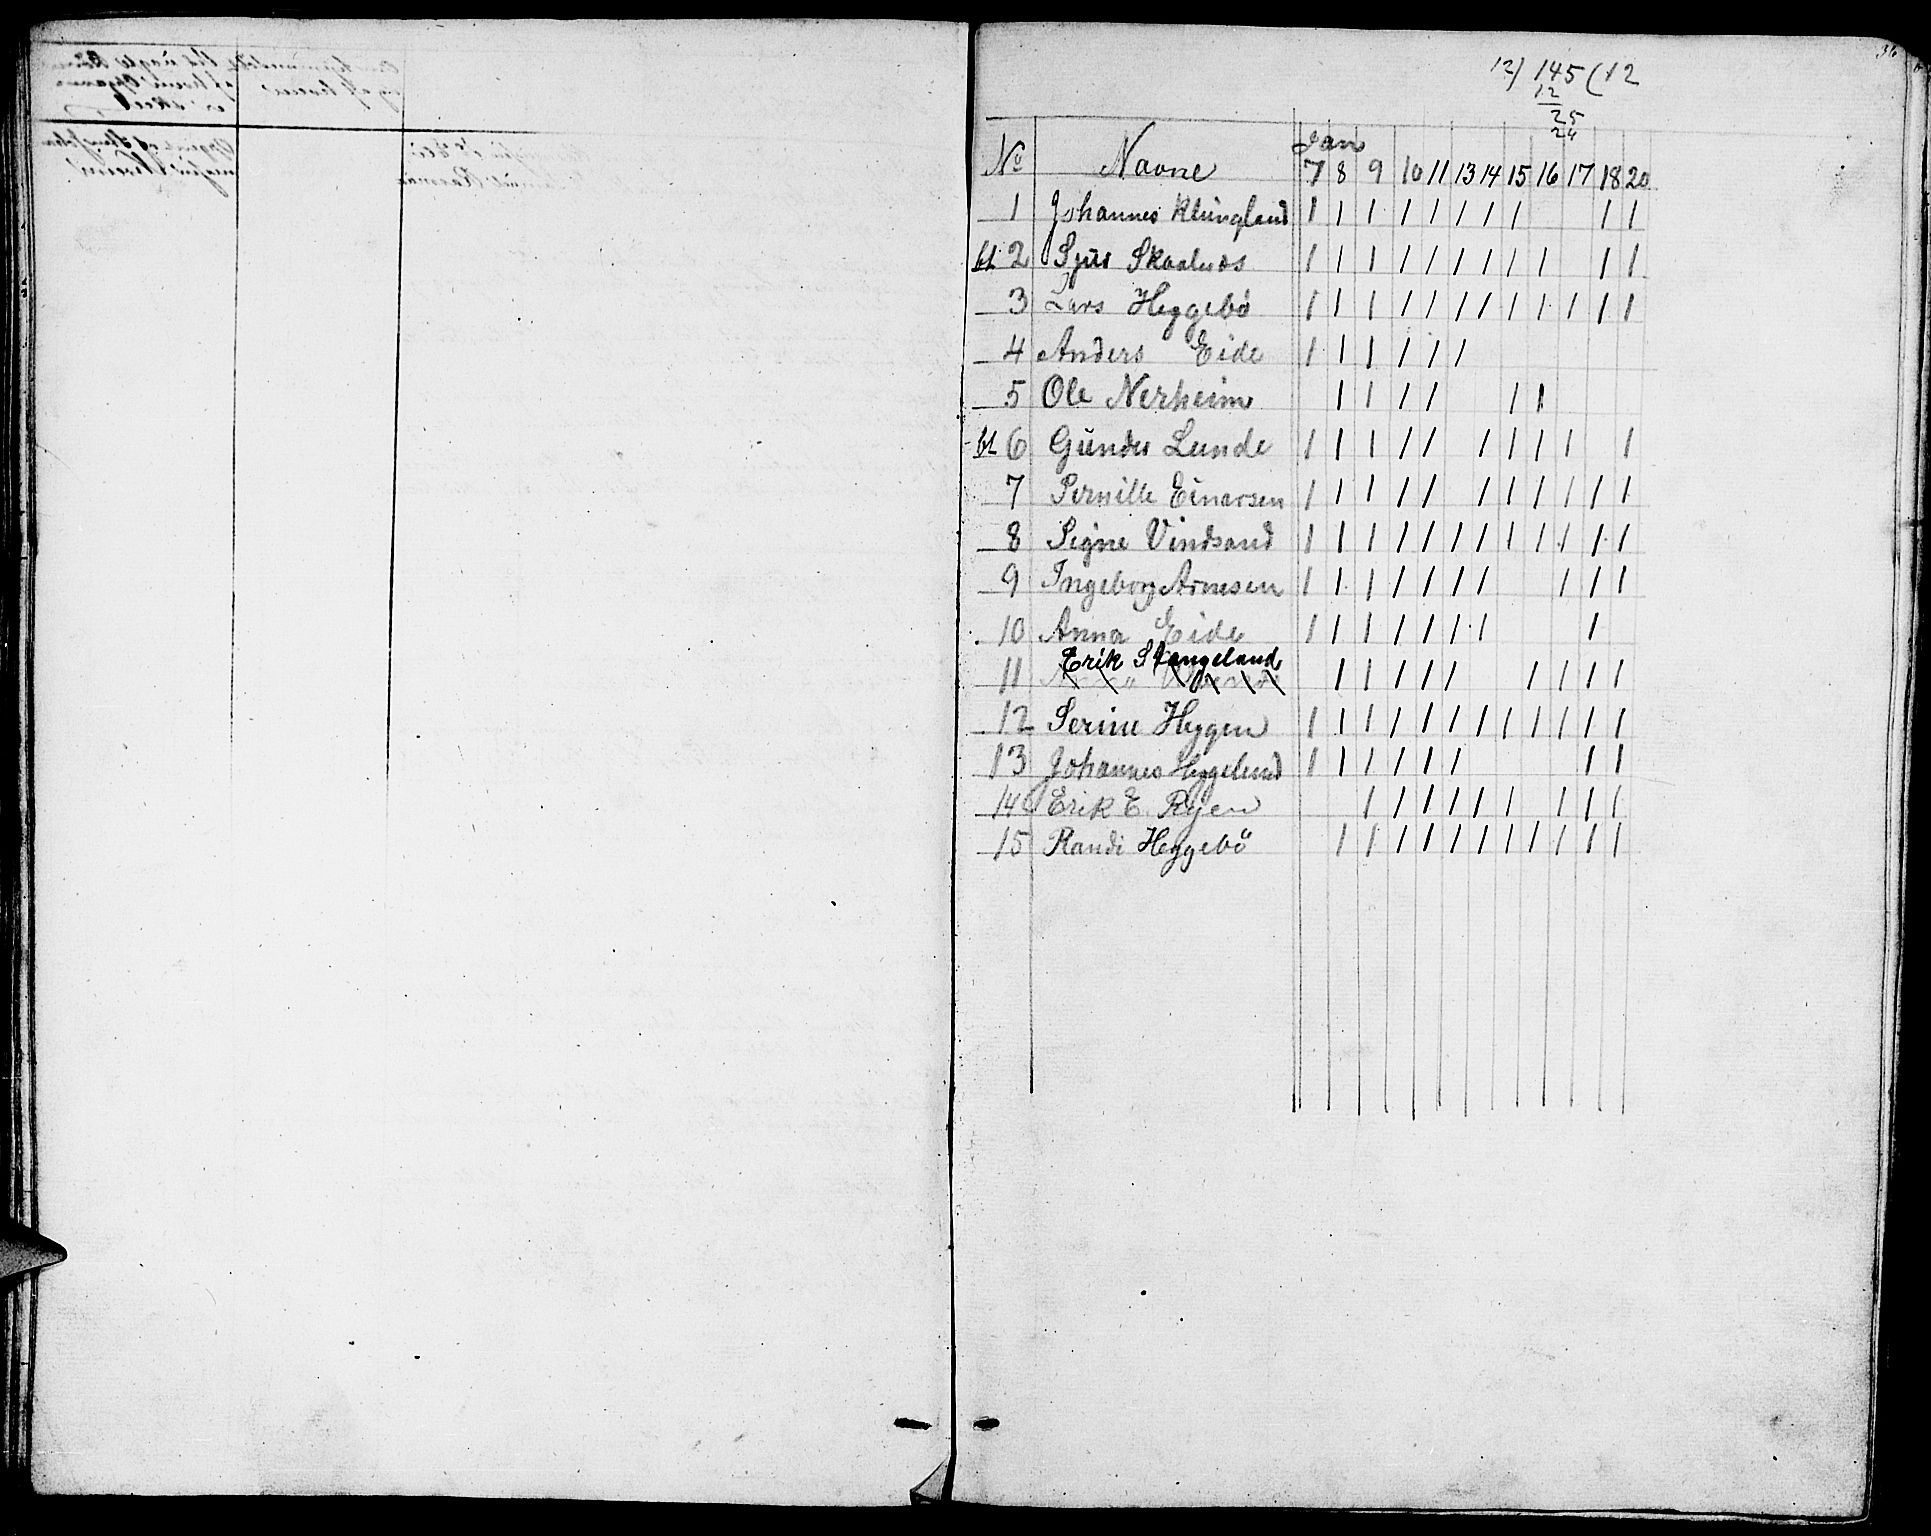 36
12) 145 (12
12
25
24
Jan
No Navne 7 8 9 10 11 13 14 15 16 17 18 20
1 Johannes Klungland 1 1 1 1 1 1 1 1 1 1
bl 2 Sjur Skaalnes 1 1 1 1 1 1 1 1 1 1 1
3 Lars Heggebö 1 1 1 1 1 1 1 1 1 1 1 1
4 Anders Eide 1 1 1 1 1 1
5 Ole Nerheim 1 1 1 1 1 1
bl 6 Gunder Lunde 1 1 1 1 1 1 1 1 1 1
7 Pernille Einarsen 1 1 1 1 1 1 1 1 1 1 1
8 Signe Vindsand 1 1 1 1 1 1 1 1 1 1 1 1
9 Ingeborg Arnesen 1 1 1 1 1 1 1 1 1 1
10 Anna Eide 1 1 1 1 1 1 1 1
Erik Stangeland
11 1 1 1 1 1 1 1 1 1
12 Serine Hygen 1 1 1 1 1 1 1 1 1 1 1 1
13 Johannes Heggelund 1 1 1 1 1 1 1 1
14 Erik E. Ryen 1 1 1 1 1 1 1 1 1
15 Randi Heggebö 1 1 1 1 1 1 1 1 1 1 1